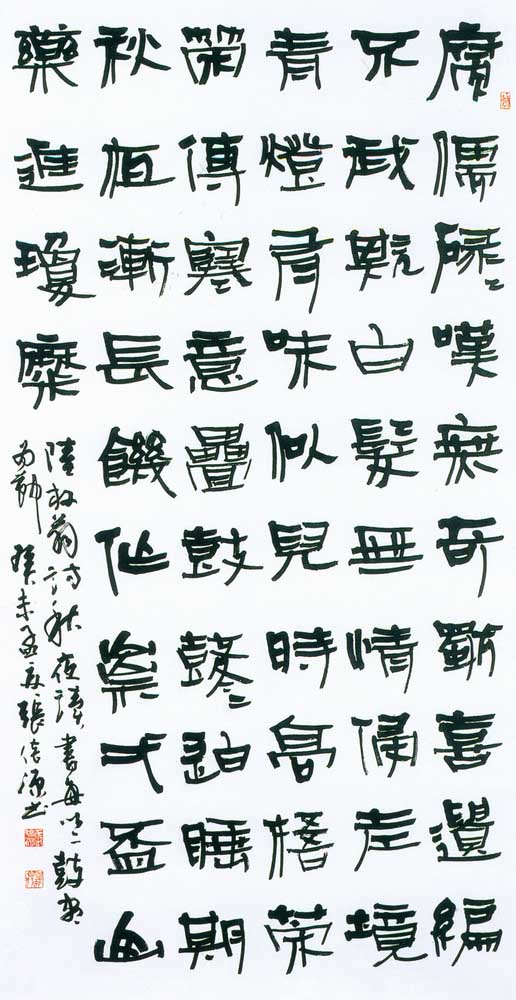 腐儒碌〻嘆無奇獨喜遺編
不我欺白髮無情侵老境
青燈有味似兒時高梧策
策傳寒意疊鼓鼕〻迫睡期
秋夜漸長饑作祟弌盃山
藥進瓊糜
陸放翁詩秋夜讀書每以二鼓盡
為節 癸未孟夏張源書